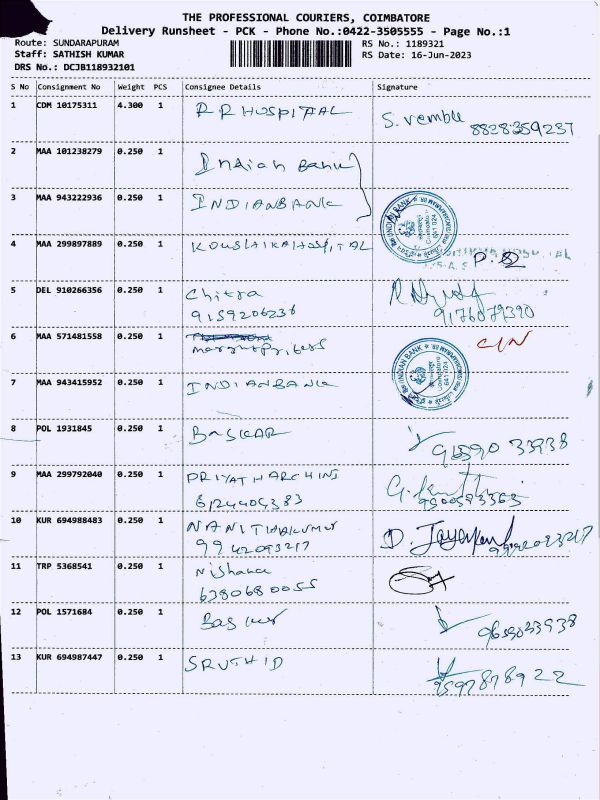 THE PROFESSIONAL COURIERS, COIMBATORE
Delivery Runsheet - PCK - Phone No.:0422-3505555 - Page No.:1
Route: SUNDARAPURAM RS No.: 1189321
Staff: SATHISH KUMAR RS Date: 16-Jun-2023
DRS No.: DCJB118932101
S No Consignment No Weight PCS Consignee Details Signature
1 CDM 10175311 4.300 1 R R HOSPITAL S. vemble
8828359237
2 MAA 101238279 0.250 1 Indian Bank
3 MAA 943222936 0.250 1 INDIANBANK
4 MAA 299897889 0.250 1 KOUSHIKAHOSPITAL
5 DEL 910266356 0.250 1 Chitra
9159206236 9176079390
6 MAA 571481558 0.250 1 C/N
7 MAA 943415952 0.250 1 INDIANBANK
INDIAN BANK
8 POL 1931845 0.250 1 BASKAR 96590 33938
9 MAA 299792040 0.250 1 PRIYATHARCHINI
6124404383
10 KUR 694988483 0.250 1 NANITHAKUMAR D.
9942093217 9942093217
11 TRP 5368541 0.250 1 Nishana
6380680055
12 POL 1571684 0.250 1 Baskar 9659033938
13 KUR 694987447 0.250 1 SRUTHID 9597878922